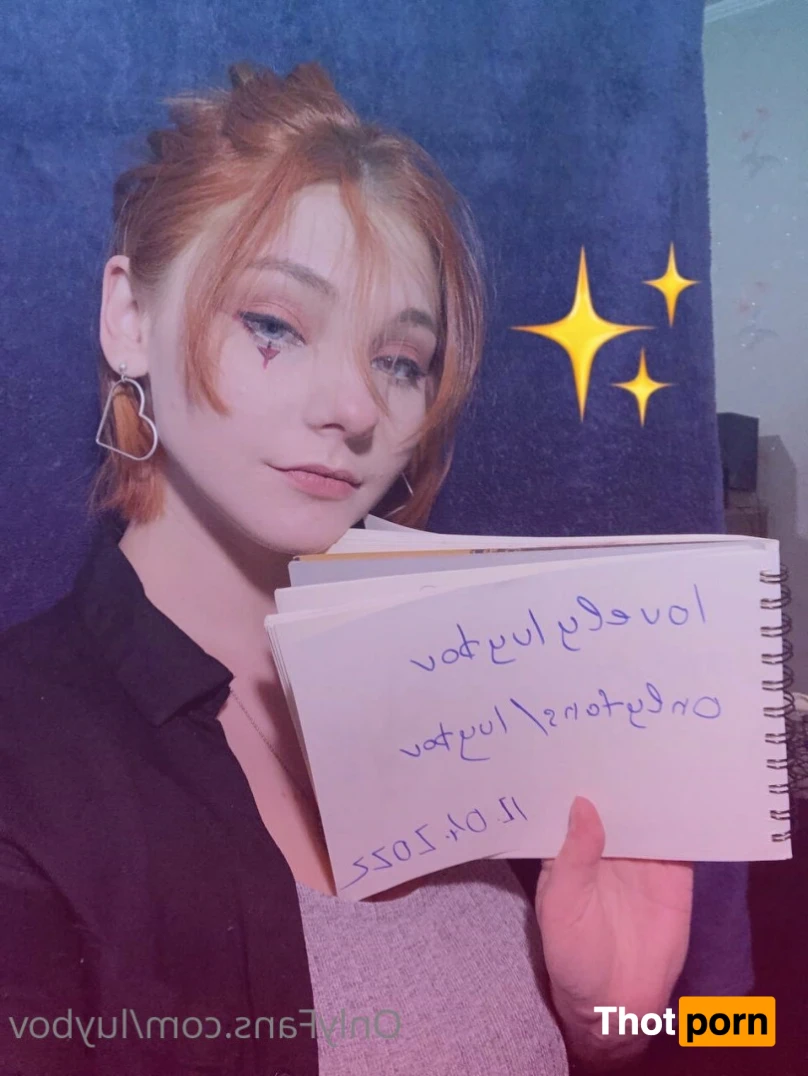 lovelyluybov
Onlyfans/luybov
12.04.2022
OnlyFans.com/luybov
Thot porn